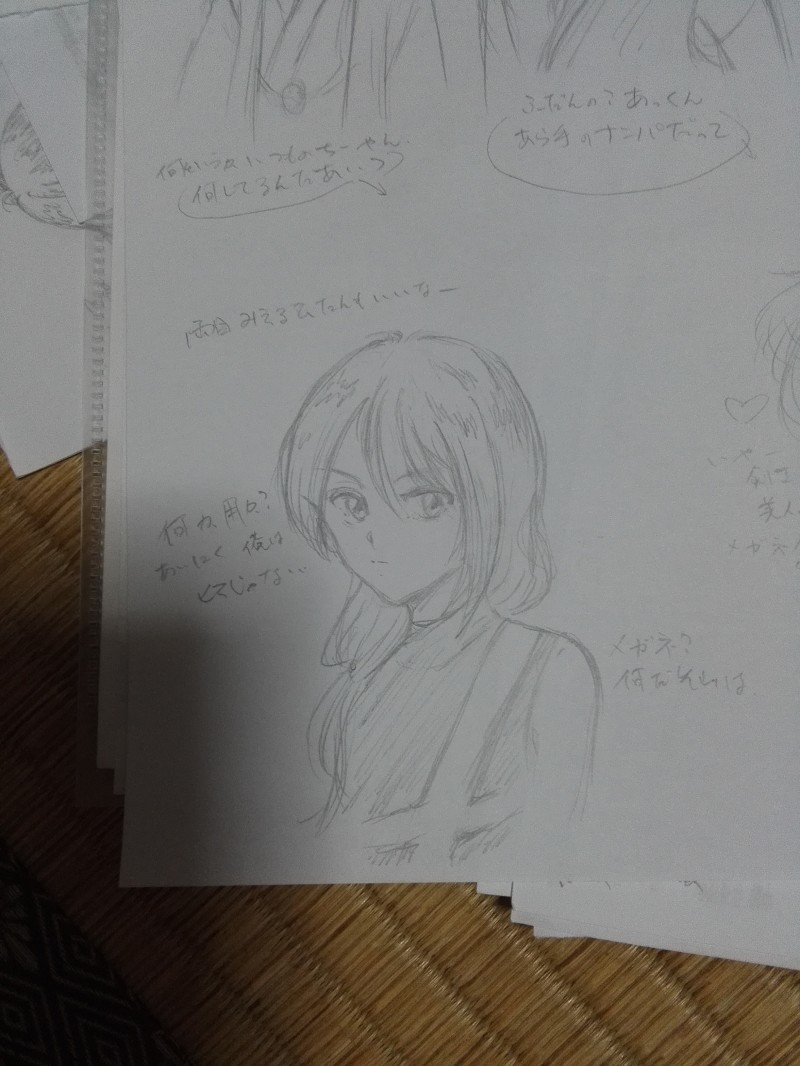 ふだんの?あっくん
あら手のナンパだって
いつものちーやん.
何してるんだあいつ
両目みえるひたんもいいなー
何か用か?
あいにく俺は
じゃない
メガネ?
何だそれは.
いやー
メガネ